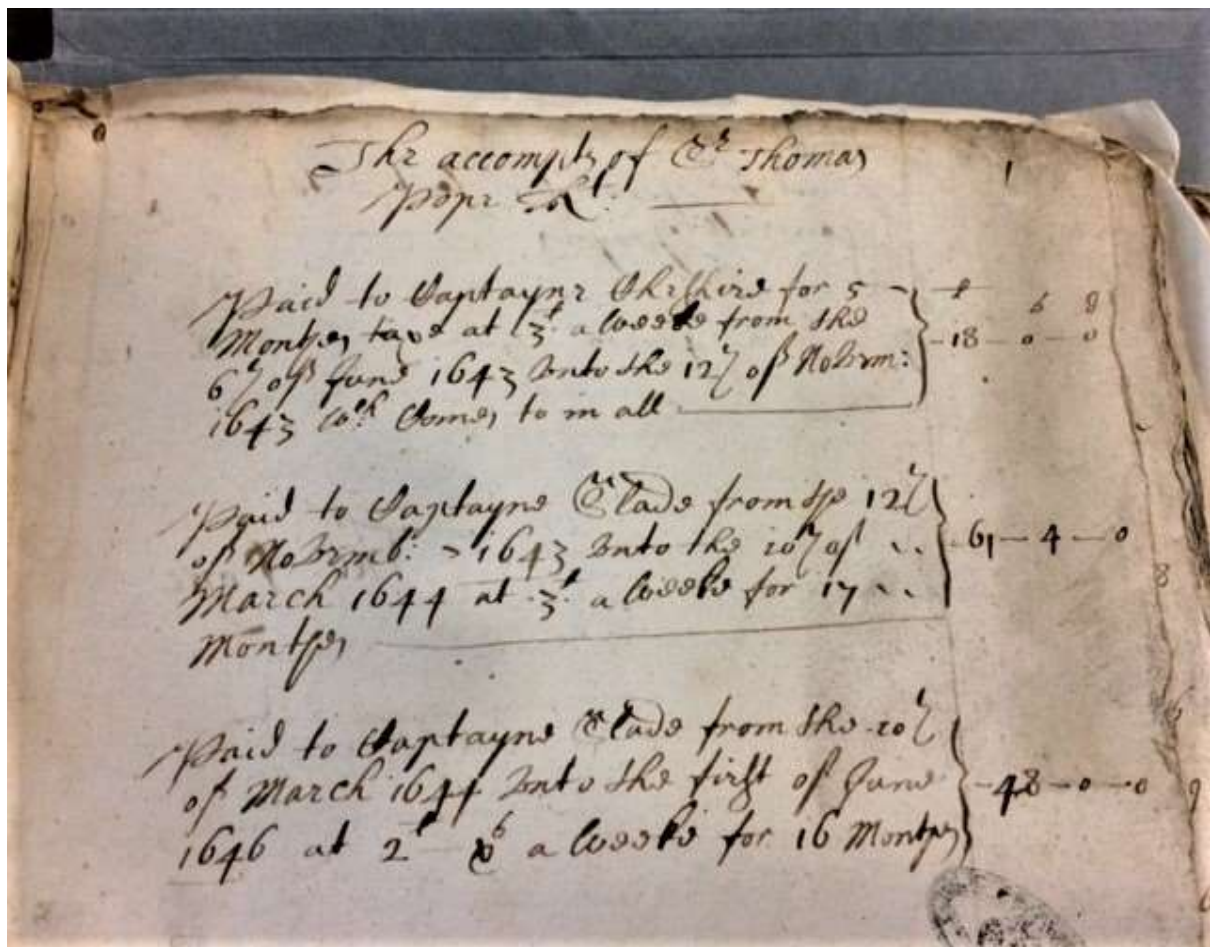 The accompts of Sr Thomas
Pope Kt:
1
Paid to Captayne Cheshire for 5
l s d
Monthes taxe at 3l a weeke from the
18 - 0 - 0
6th of June 1643 Vnto the 12th of Novem:
1643 wch Comes to in all
Paid to Captayne Slade from the 12th
of Novemb: 1643 Vnto the 10th of
61 - 4 - 0
March 1644 at 3l a weeke for 17
Monthes
Paid to Captayne Slade from the 10th
of March 1644 Vnto the first of June
48 - 0 - 0
1646 at 2l a weeke for 16 Monthes